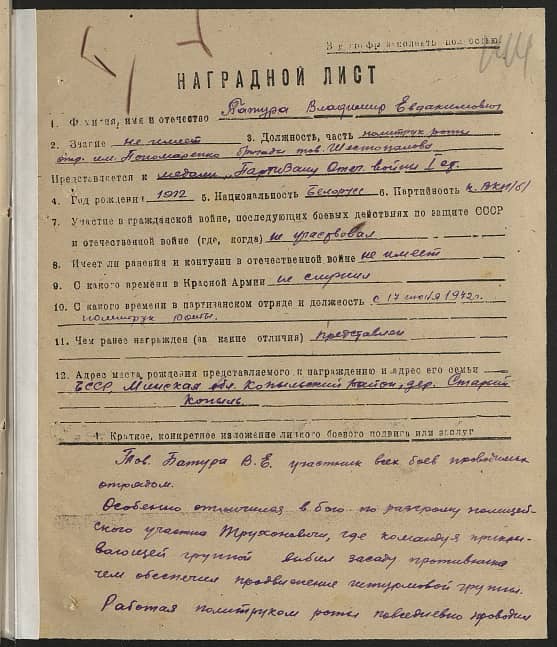 В 1 графу заполнять полностью
НАГРАДНОЙ ЛИСТ
1. Фамилия, имя и отечество Батура Владимир Евдакимович
2. Звание не имеет 3. Должность, часть политрук роты
отд. им. Пономаренко бригады тов. Шестопалова
Представляется к медали "Партизану Отеч. войны I ст.
4. Год рождения 1912 5. Национальность Белорус 6. Партийность ч. ВКП/б/
7. Участие в гражданской войне, последующих боевых действиях по защите СССР
и отечественной войне (где, когда) не участвовал
8. Имеет ли ранения и контузии в отечественной войне не имеет
9. С какого времени в Красной Армии не служил
10. С какого времени в партизанском отряде и должность с 17 1942 г.
политрук роты.
11. Чем ранее награжден (за какие отличия) представлен
12. Адрес места рождения представляемого к награждению и адрес его семьи
БССР, Минская обл. Копыльский район, дер. Старый
Копыль.
1. Краткое, конкретное изложение личного боевого подвига или заслуг
Тов. Батура В.Е. участник всех боев проводимых
отрядом.
Особенно отличился в бою по разгрому полицей-
ского участка Трухановичи, где командуя прикры-
вающей группой выбил засаду противника
чем обеспечил продвижение штурмовой группы.
Работая политруком роты повседневно проводил